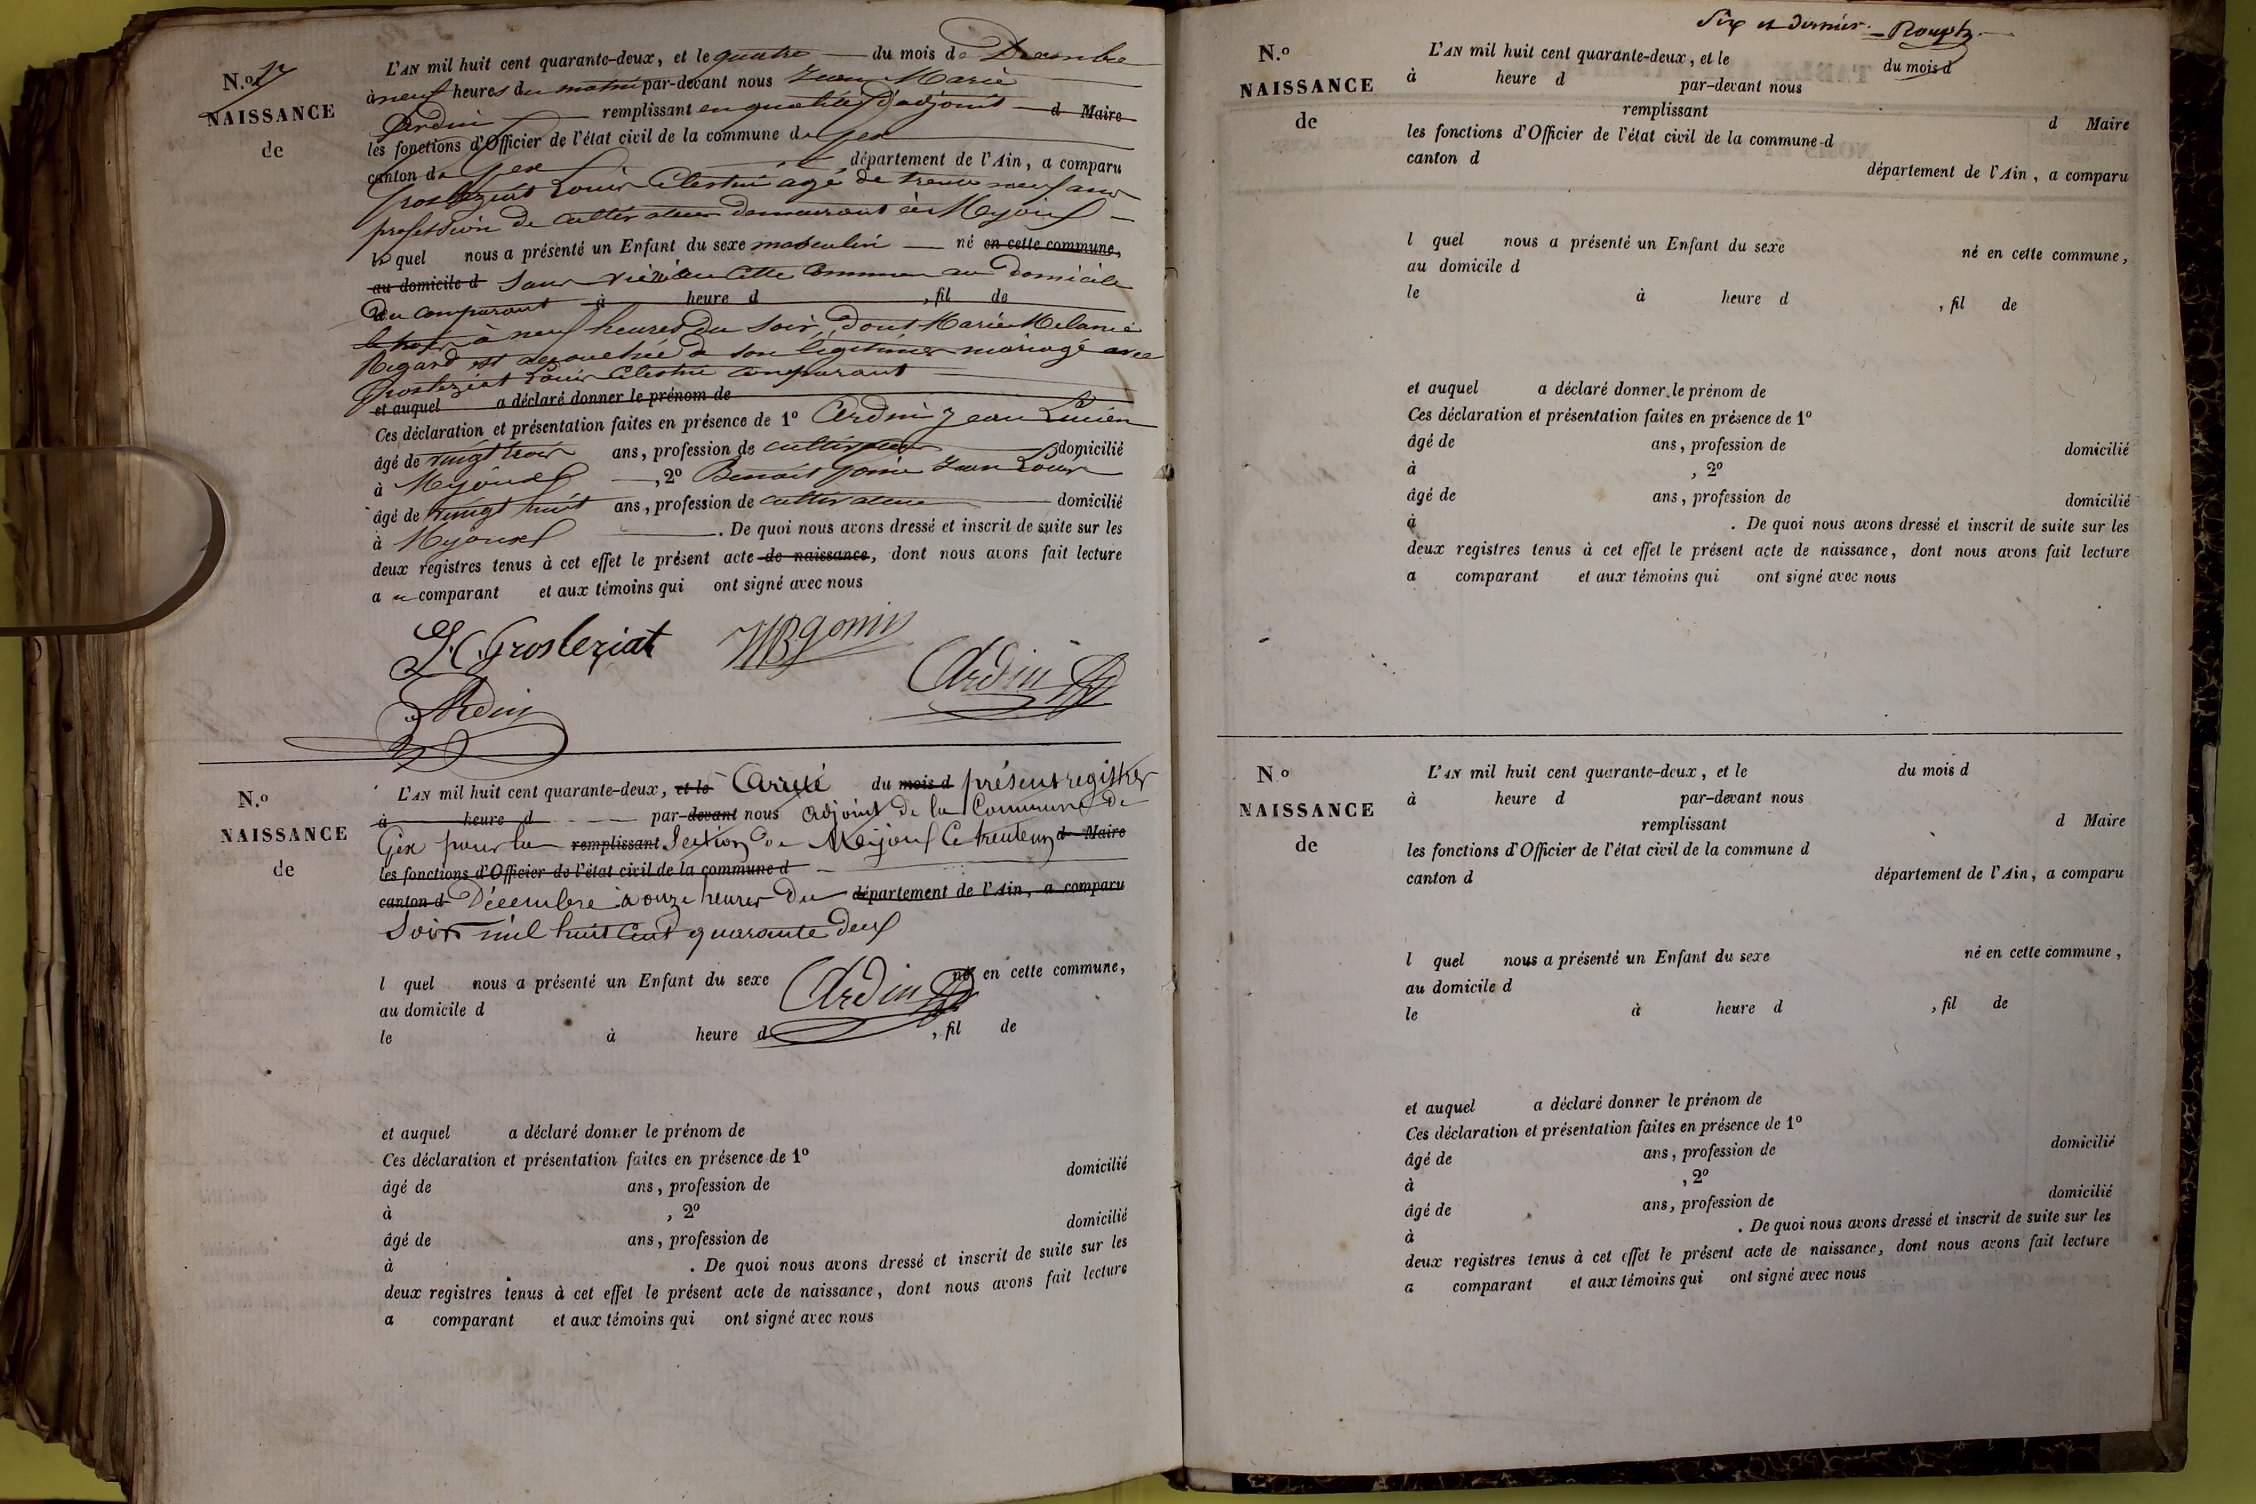 N.º 17
NAISSANCE
de
L'AN mil huit cent quarante-deux, et le quatre du mois de Décembre
à neuf heures du matin par-devant nous Jean Marie
Ardin remplissant en qualité d'adjoint d Maire
les fonctions d'Officier de l'état civil de la commune de Gex
canton de Gex département de l'Ain, a comparu
Grosleziat Louis Célestin agé de trente neuf ans
profession de cultivateur demeurant à Mijoux
le quel nous a présenté un Enfant du sexe masculin né en cette commune,
au domicile d Sans vie née en cette commune au domicile
du comparant à heure d , fil de
à neuf heures du soir, dont Marie Melanie
Regard est accouchée de son légitime mariage avec
Grosleziat Louis Célestin comparant
et auquel a déclaré donner le prénom de
Ces déclaration et présentation faites en présence de 1º Ardin Jean Lucien
âgé de vingt trois ans, profession de cultivateur domicilié
à Mijoux , 2º Benoit Gonin Jean Louis
âgé de vingt huit ans, profession de cultivateur domicilié
à Mijoux . De quoi nous avons dressé et inscrit de suite sur les
deux registres tenus à cet effet le présent acte de naissance, dont nous avons fait lecture
a u comparant et aux témoins qui ont signé avec nous
L. C. Grosleziat
Gonin
Ardin
Ardin
N.º
NAISSANCE
de
L'AN mil huit cent quarante-deux, et le Arreté du mois d présent registre
à heure d par-devant nous adjoint de la Commune de
Gex pour la remplissant Section de Meijoux ce trente un d Maire
les fonctions d'Officier de l'état civil de la commune d
canton d Décembre à onze heures du département de l'Ain, a comparu
Soir mil huit Cent quarante deux
l quel nous a présenté un Enfant du sexe né en cette commune,
Ardin
au domicile d
le à heure d , fil de
et auquel a déclaré donner le prénom de
Ces déclaration et présentation faites en présence de 1º
âgé de ans, profession de domicilié
à , 2º
âgé de ans, profession de domicilié
à . De quoi nous avons dressé et inscrit de suite sur les
deux registres tenus à cet effet le présent acte de naissance, dont nous avons fait lecture
a comparant et aux témoins qui ont signé avec nous
Six et dernier.
N.º
NAISSANCE
de
L'AN mil huit cent quarante-deux, et le du mois d
à heure d par-devant nous
remplissant d Maire
les fonctions d'Officier de l'état civil de la commune d
canton d département de l'Ain, a comparu
l quel nous a présenté un Enfant du sexe né en cette commune,
au domicile d
le à heure d , fil de
et auquel a déclaré donner le prénom de
Ces déclaration et présentation faites en présence de 1º
âgé de ans, profession de domicilié
à , 2º
âgé de ans, profession de domicilié
à . De quoi nous avons dressé et inscrit de suite sur les
deux registres tenus à cet effet le présent acte de naissance, dont nous avons fait lecture
a comparant et aux témoins qui ont signé avec nous
N.º
NAISSANCE
de
L'AN mil huit cent quarante-deux, et le du mois d
à heure d par-devant nous
remplissant d Maire
les fonctions d'Officier de l'état civil de la commune d
canton d département de l'Ain, a comparu
l quel nous a présenté un Enfant du sexe né en cette commune,
au domicile d
le à heure d , fil de
et auquel a déclaré donner le prénom de
Ces déclaration et présentation faites en présence de 1º
âgé de ans, profession de domicilié
à , 2º
âgé de ans, profession de domicilié
à . De quoi nous avons dressé et inscrit de suite sur les
deux registres tenus à cet effet le présent acte de naissance, dont nous avons fait lecture
a comparant et aux témoins qui ont signé avec nous